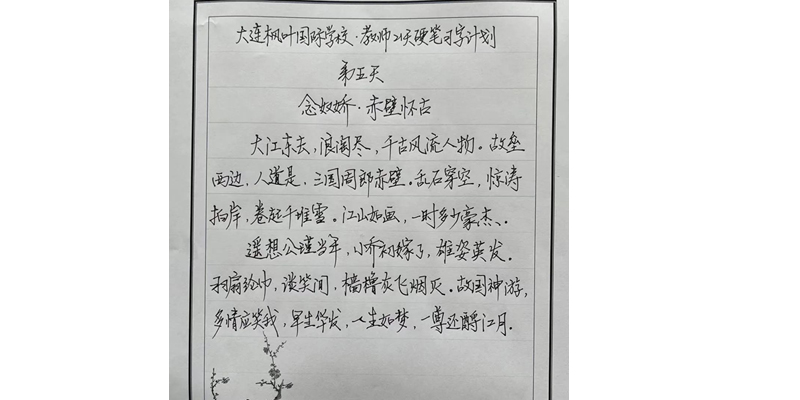 大连枫叶国际学校·教师21天硬笔习字计划
第五天
念奴娇·赤壁怀古
大江东去，浪淘尽，千古风流人物。故垒
西边，人道是，三国周郎赤壁。乱石穿空，惊涛
拍岸，卷起千堆雪。江山如画，一时多少豪杰。
遥想公瑾当年，小乔初嫁了，雄姿英发。
羽扇纶巾，谈笑间，樯橹灰飞烟灭。故国神游，
多情应笑我，早生华发，人生如梦，一尊还酹江月。